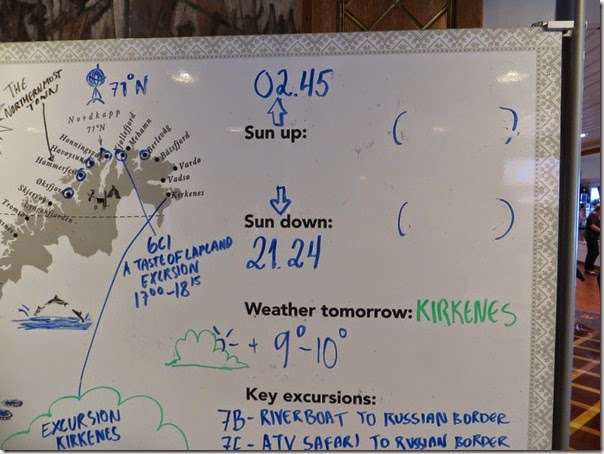 THE
NORTHERNMOST
TOWN
71°N
Nordkapp
71°N
Honningsvåg
Kjøllefjord
Mehamn
Berlevåg
Båtsfjord
Havøysund
Hammerfest
Vardø
Vadsø
Øksfjord
Kirkenes
Skjervøy
6C1
A TASTE OF LAPLAND
EXCRSION
17⁰⁰-18¹⁵
EXCURSION
KIRKENES
02.45
Sun up: ( )
Sun down: ( )
21.24
Weather tomorrow: KIRKENES
+ 9°-10°
Key excursions:
7B - RIVERBOAT TO RUSSIAN BORDER
7C - ATV SAFARI TO RUSSIAN BORDER